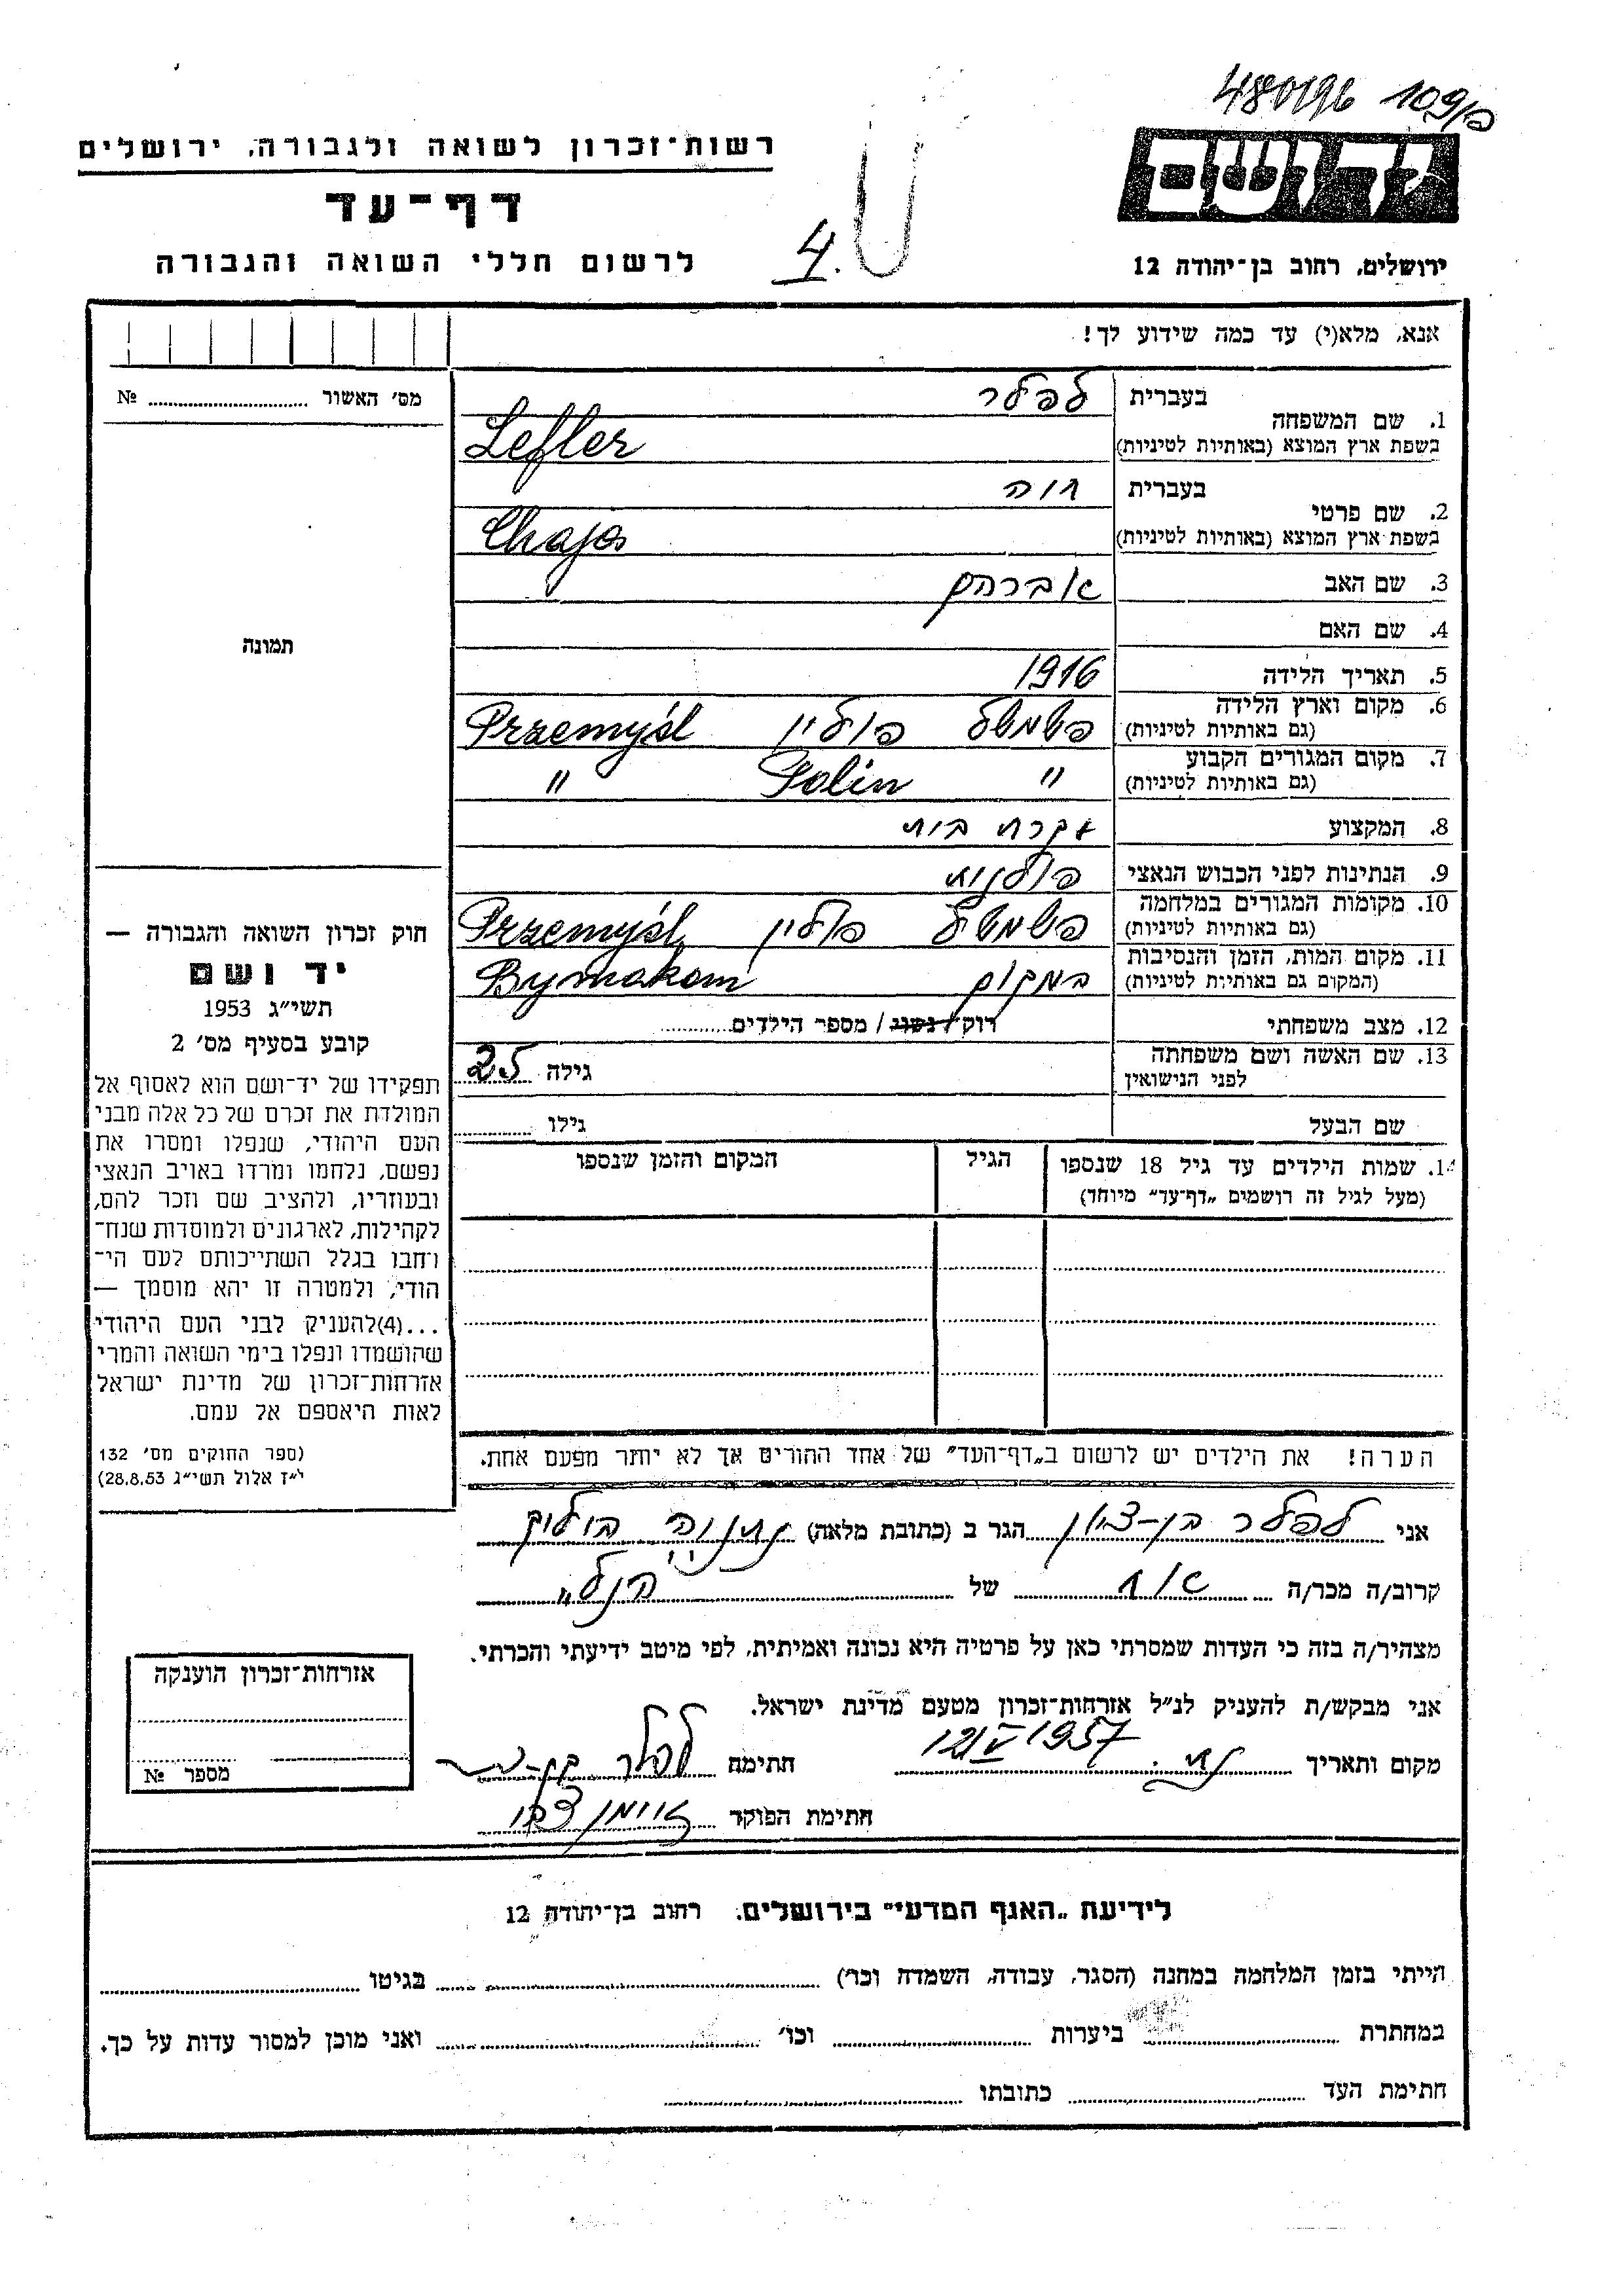 480196 109/פ
יד ושם
רשות־זכרון לשואה ולגבורה, ירושלים
דף־עד
לרשום חללי השואה והגבורה
4.
ירושלים, רחוב בן־יהודה 12
אנא, מלא(י) עד כמה שידוע לך!
מס׳ האשור № 
1. שם המשפחה
בעברית לפלר
בשפת ארץ המוצא (באותיות לטיניות) Lefler
2. שם פרטי
בעברית חיה
בשפת ארץ המוצא (באותיות לטיניות) Chaja
3. שם האב אברהם
4. שם האם
תמונה
5. תאריך הלידה 1916
6. מקום וארץ הלידה
(גם באותיות לטיניות) פשמשל פולין Przemyśl
7. מקום המגורים הקבוע
(גם באותיות לטיניות) " Polin "
8. המקצוע עקרת בית
9. הנתינות לפני הכבוש הנאצי פולנית
10. מקומות המגורים במלחמה
(גם באותיות לטיניות) פשמשל פולין Przemyśl
11. מקום המות, הזמן והנסיבות
(המקום גם באותיות לטיניות) במקום Bymakom
12. מצב משפחתי רוק / נשוי / מספר הילדים
13. שם האשה ושם משפחתה
לפני הנישואין גילה 25
שם הבעל גילו
14. שמות הילדים עד גיל 18 שנספו
(מעל לגיל זה רושמים „דף־עד״ מיוחד)
הגיל
המקום והזמן שנספו
הערה! את הילדים יש לרשום ב„דף־העד״ של אחד ההורים אך לא יותר מפעם אחת.
חוק זכרון השואה והגבורה —
יד ושם
תשי״ג 1953
קובע בסעיף מס׳ 2
תפקידו של יד־ושם הוא לאסוף אל
המולדת את זכרם של כל אלה מבני
העם היהודי, שנפלו ומסרו את
נפשם, נלחמו ומרדו באויב הנאצי
ובעוזריו, ולהציב שם וזכר להם,
לקהילות, לארגונים ולמוסדות שנח־
רחבו בגלל השתייכותם לעם הי־
הודי, ולמטרה זו יהא מוסמך —
...(4)להעניק לבני העם היהודי
שהושמדו ונפלו בימי השואה והמרי
אזרחות־זכרון של מדינת ישראל
לאות היאספם אל עמם.
(ספר החוקים מס׳ 132
י״ז אלול תשי״ג 28.8.53)
אני לפלר בן-ציון הגר ב (כתובת מלאה) נתניה
קרוב/ה מכר/ה אח של הנ"ל
מצהיר/ה בזה כי העדות שמסרתי כאן על פרטיה היא נכונה ואמיתית, לפי מיטב ידיעתי והכרתי.
אני מבקש/ת להעניק לנ״ל אזרחות־זכרון מטעם מדינת ישראל.
מקום ותאריך נת. 12/V 1957 חתימה לפלר בן-ציון
חתימת הפוקד
אזרחות־זכרון הוענקה
מספר №
לידיעת „האגף המדעי״ בירושלים. רחוב בן־יהודה 12
הייתי בזמן המלחמה במחנה (הסגר, עבודה, השמדה וכר׳) בגיטו
במחתרת ביערות וכו׳ ואני מוכן למסור עדות על כך.
חתימת העד כתובתו